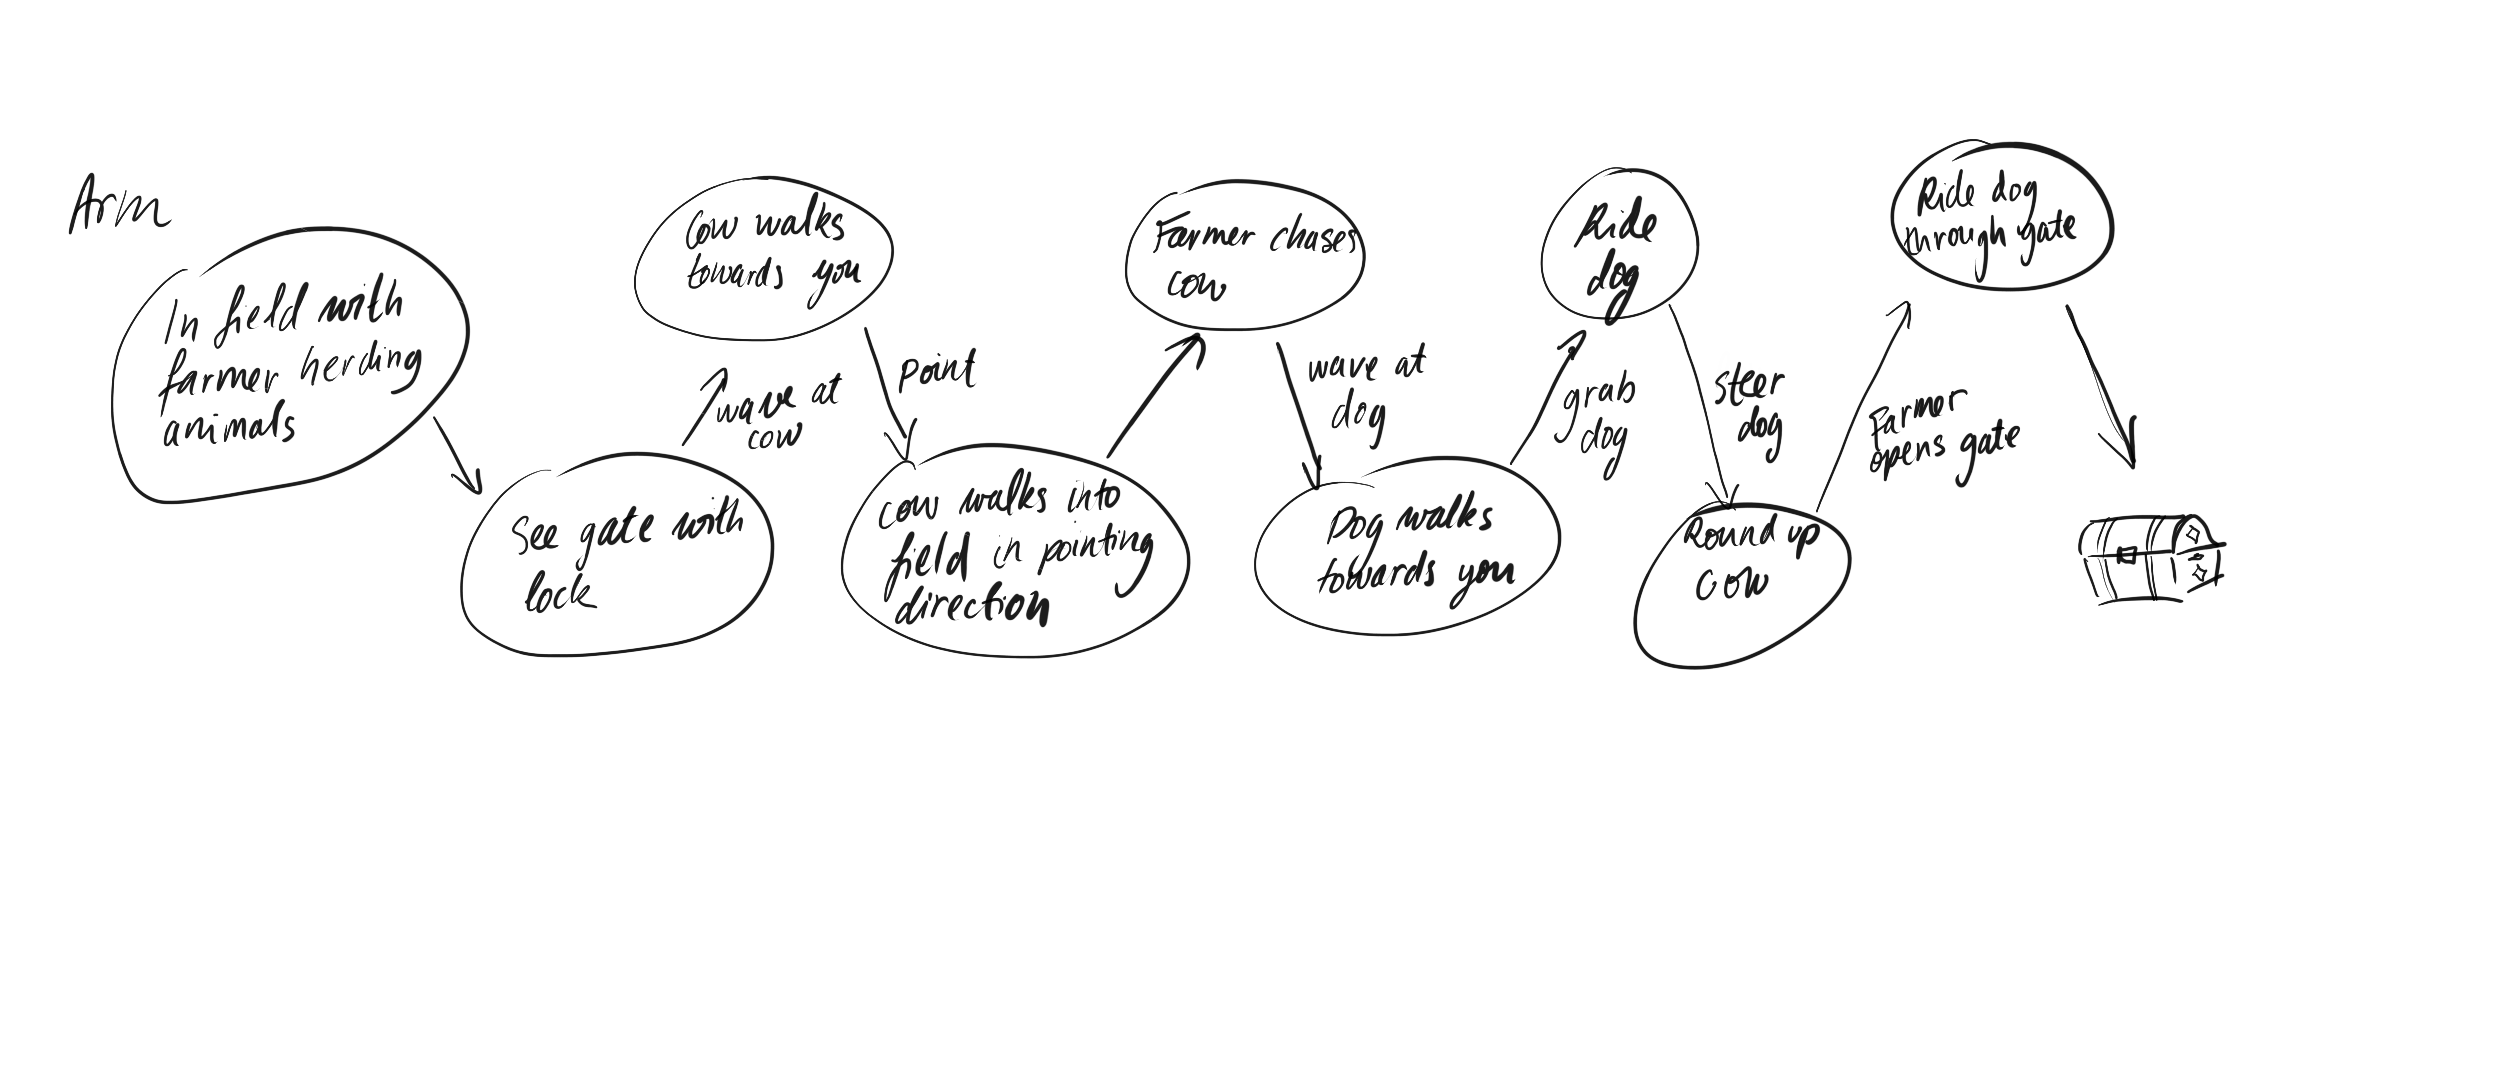 Arm
In field with
farmer herding
animals
See gate with
lock
wave at
cow
Cow walks
towards you
Point
Cow walks into
field in pointing
direction
Farmer chases
cow.
wave at
dog
Dog walks
towards you
grab
dog
Ride
dog
steer
dog
Round up
cow
farmer
opens gate
Ride dog
through gate